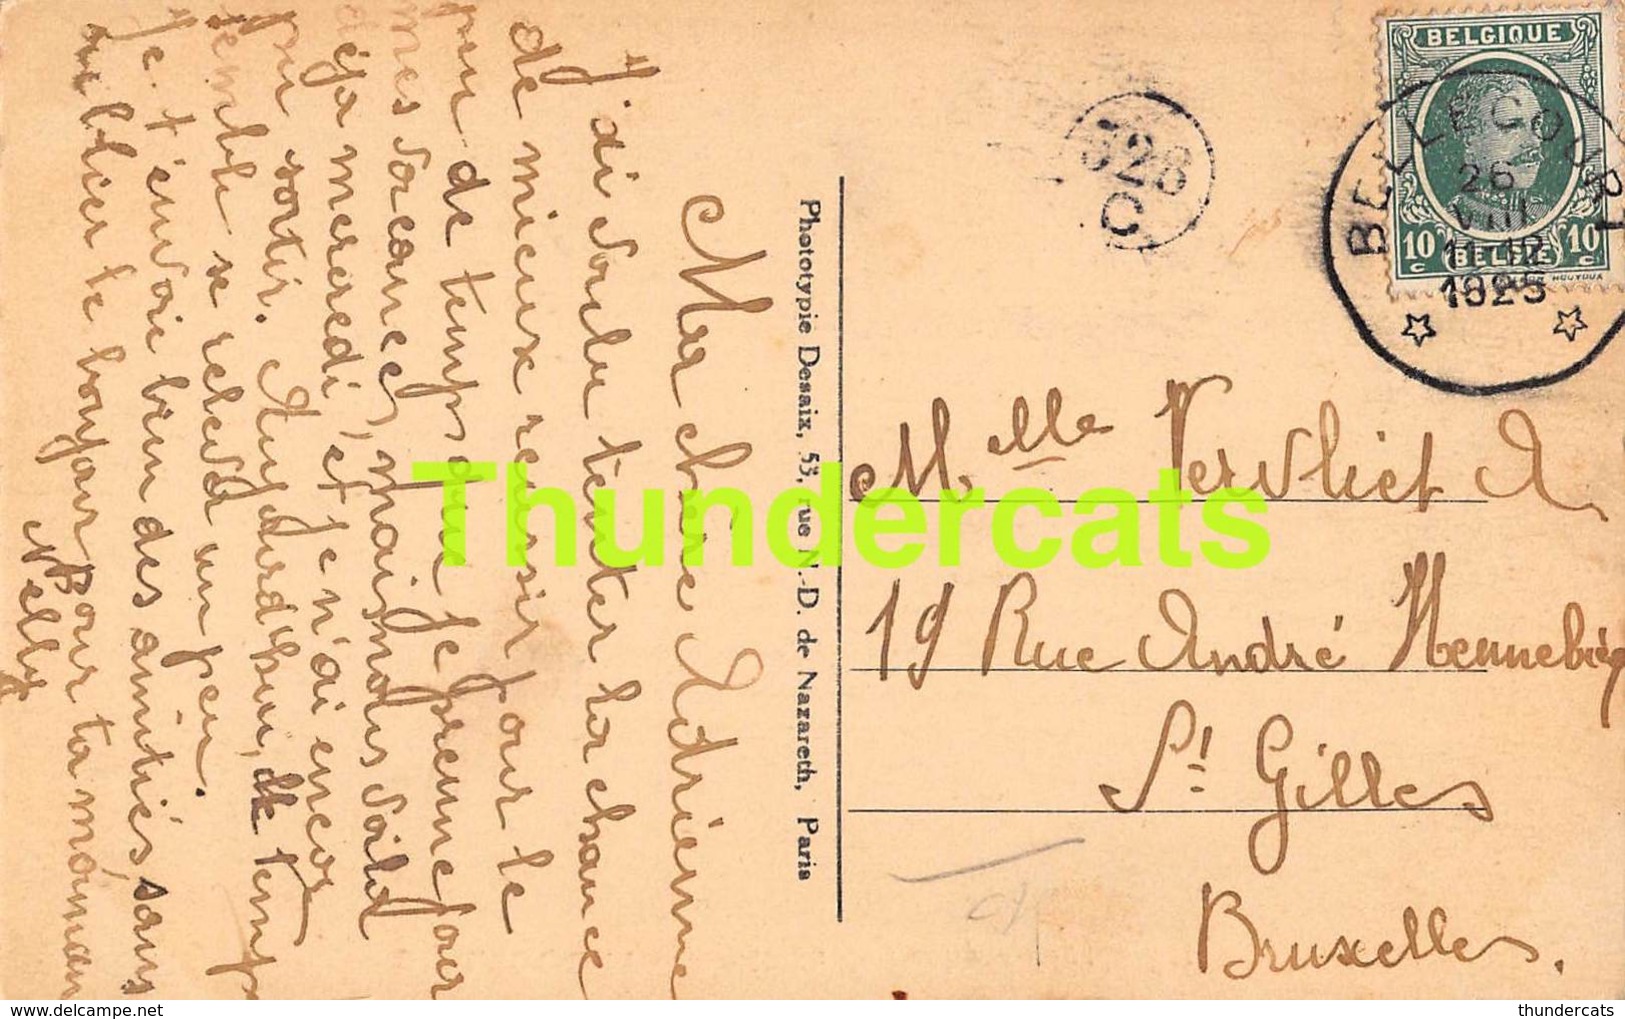 Ma chère Adrienne
J'ai voulu tenter la chance
de mieux réussir pour le
peu de temps que je prenne pour
mes vacances, mais nous voilà
déja mercredi, et je n'ai encor
pu sortir. Aujourd'hui, le temps
semble se relever un peu.
Je t'envoie bien des amitiés, sans
oublier le bonjour pour ta maman
Nelly
Phototypie Desaix, 53, rue N.-D. de Nazareth, Paris
328
C
BELGIQUE
10 c BELGIË 10 c
HOUYOUX
BELLECOURT
26
VIII
11-12
1925
Melle Vervliet A
19 Rue André Hennebicq
St Gilles
Bruxelles.
Thundercats
delcampe.net
thundercats